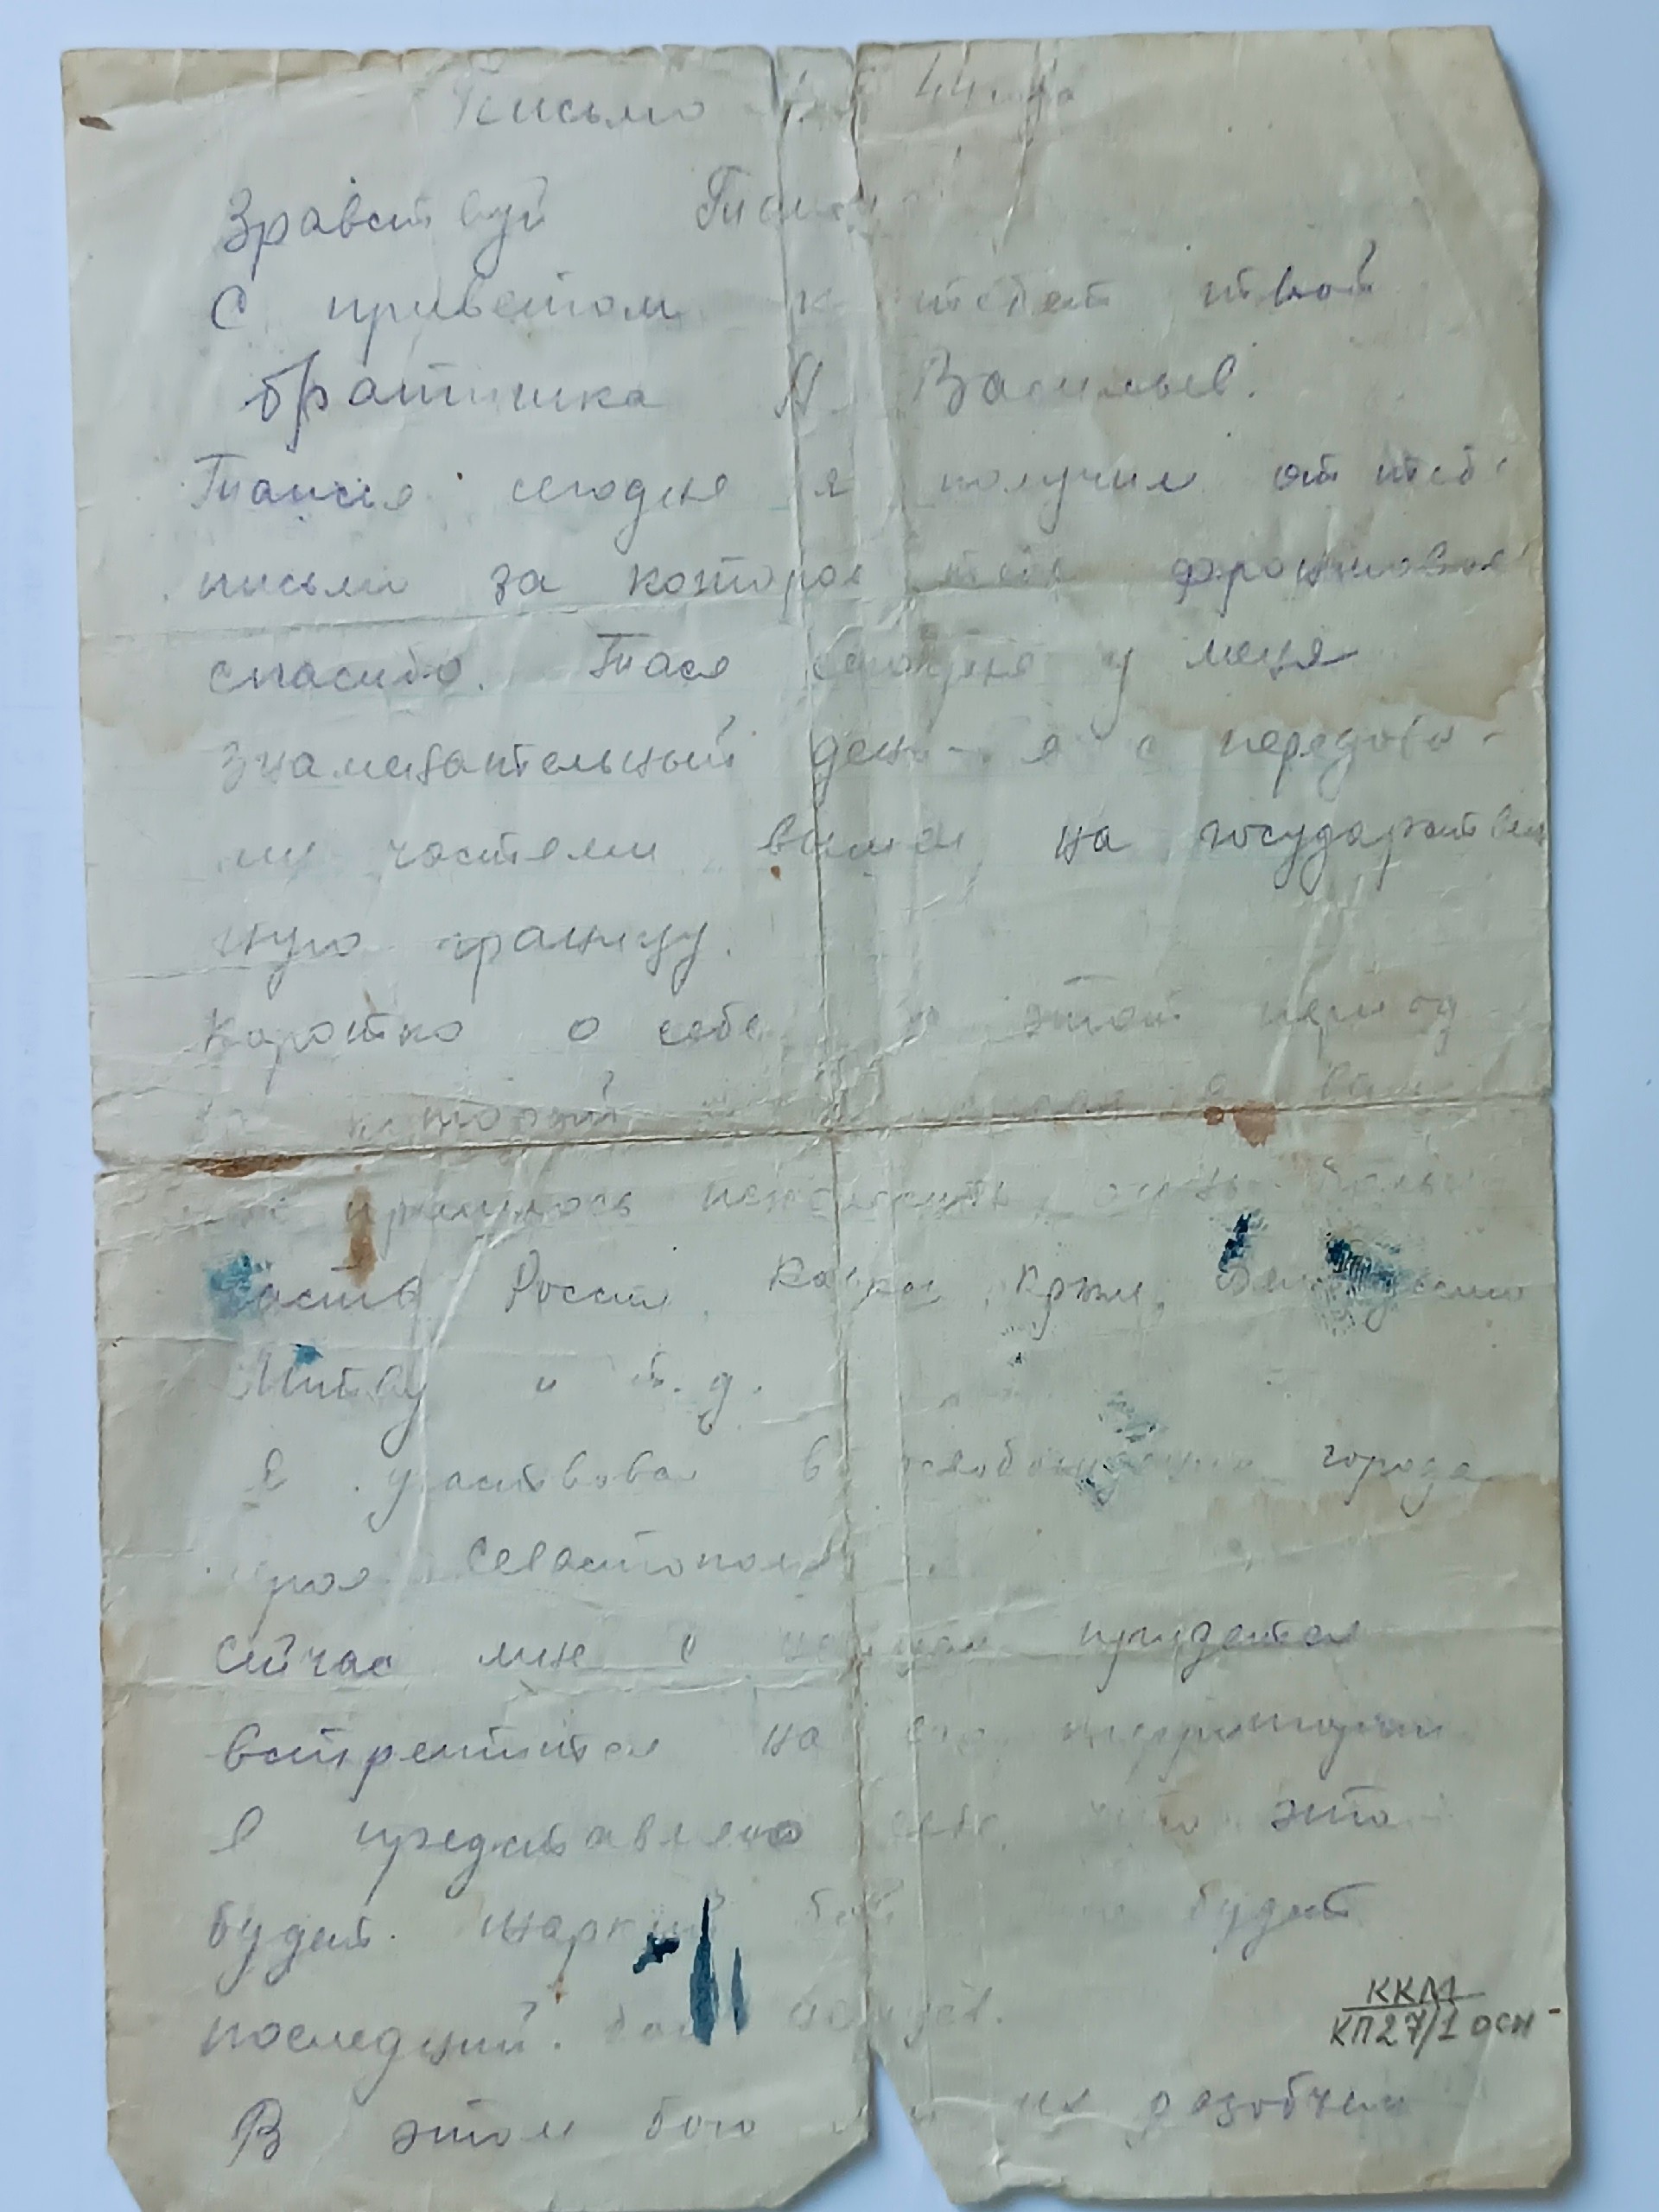 Письмо 44 года
Зравствуй Тися
С приветом к тебет твой
братишка А. Васильев.
Таисия сегодня я получил от тебя
письмо за которое тебе фронтовое
спасибо. Тася сегодня у меня
знаменательный день я с передовы-
ми частями вышел на государствен
ную границу.
Коротко о себе этот период
за который я вам
мне пришлось исколесить очень большую
часть России, Кавказ, Крым, Белоруссию
Литву и т.д.
Я участвовал в освобождении города
героя Севастополя.
Сейчас мне с немцам придется
встретится на его территории
Я представляю себе что это
будет жаркий бой но будет
последний.
В этом бою мы их разобьем
ККМ
КП27/1 осн